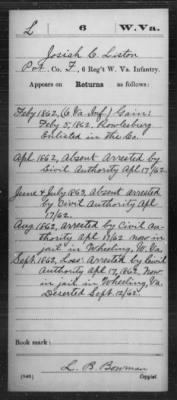 L 6 W. Va.
Josiah C. Liston
Pvt., Co. F, 6 Reg't W. Va. Infantry.
Appears on Returns as follows:
Feby 1862, (6 Va. Inf.) Gain:
Feb. 5, 1862. Rowlesburg
Enlisted in the Co.
Apl. 1862, Absent Arrested by
Civil Authority Apl 17/62.
June & July 1862, absent arrested
by Civil Authority Apl
17/62.
Aug 1862, arrested by Civil Au-
thority Apl 17/62 now in
jail in Wheeling, W. Va.
Sept. 1862, Loss: Arrested by Civil
Authority Apl 17, 1862. Now
in jail in Wheeling, Va.
Deserted Sept. 12/62.
Book mark:
L. B. Bowman
(546) Copyist.